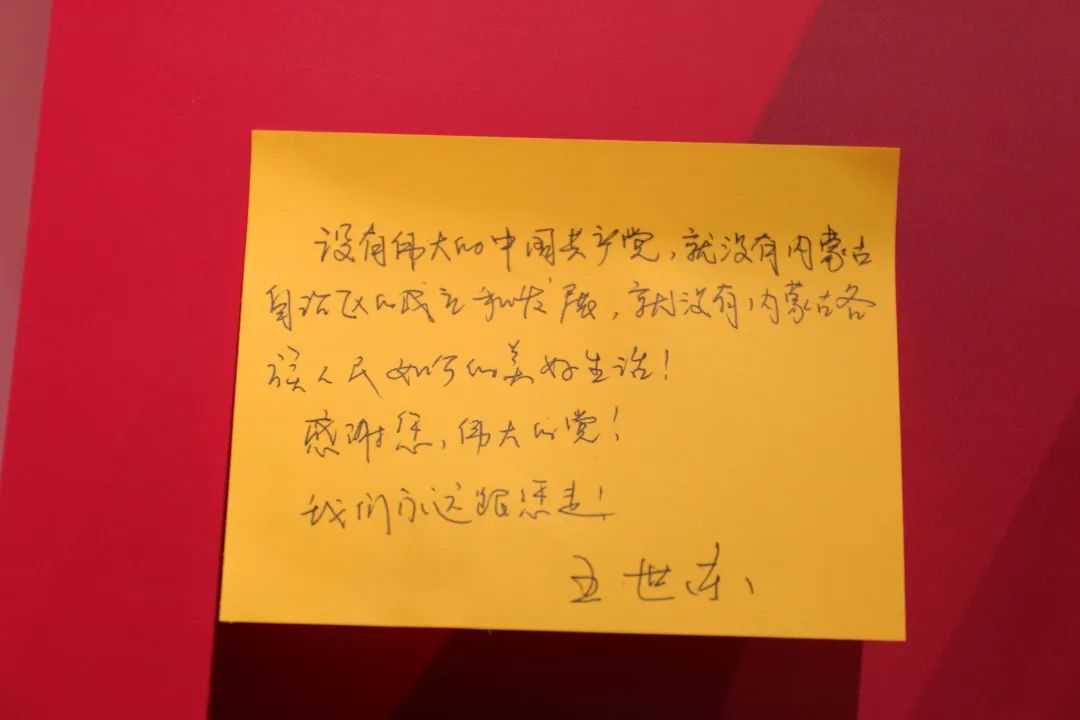 没有伟大的中国共产党，就没有内蒙古
自治区的成立和发展，就没有内蒙古各
族人民如今的美好生活！
感谢您，伟大的党！
我们永远跟您走！
王世东